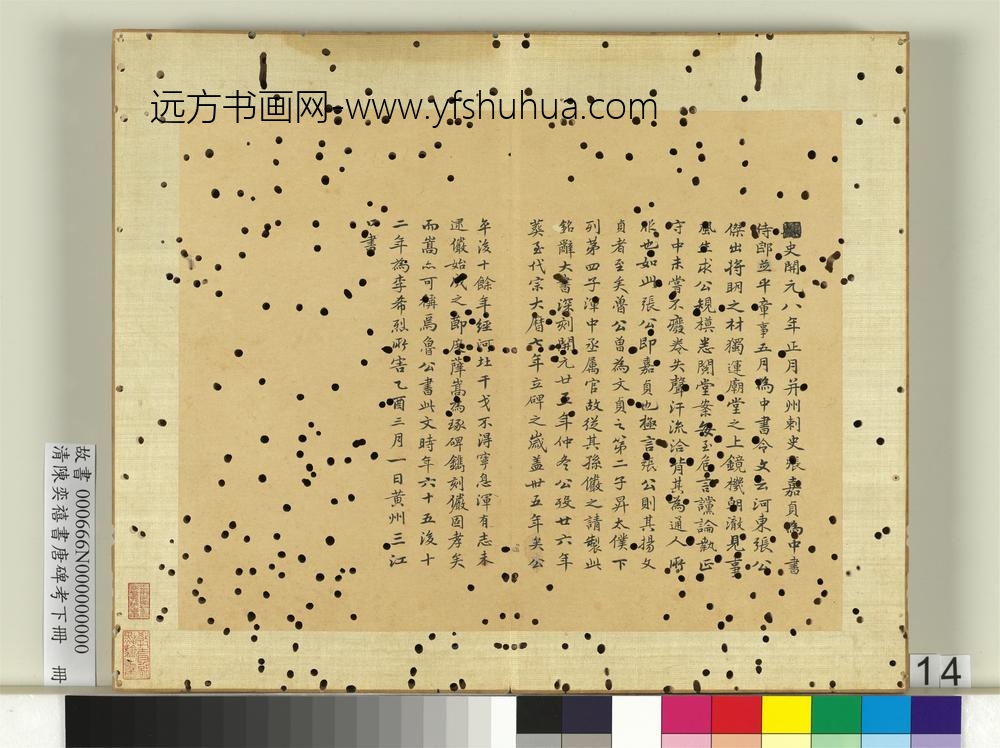 远方书画网-www.yfshuhua.com
史開元八年正月并州刺史張嘉貞為中書
侍郎並平章事五月為中書令文云河東張公
傑出將明之材獨運廟堂之上鏡機朗澈見事
風生求公規模悉閱堂案每至危言讜論執正
守中未嘗不廢卷失聲汗流洽背其為通人所
服也如此張公即嘉貞也極言張公則其揚文
貞者至矣魯公曾為文貞之第二子昇太僕下
列第四子渾中丞屬官故從其孫儼之請製此
銘辭大書深刻開元廿五年仲冬公歿廿六年
葬至代宗大曆七年立碑之歲蓋卅五年矣公
年後十餘年經河北干戈不得寧息渾有志未
逮儼始成之節度薛嵩為琢碑鐫刻儼固孝矣
而嵩亦可稱焉魯公書此文時年六十五後十
二年為李希烈所害乙酉三月一日黄州三江
口書
故書 000666N000000000
清陳奕禧書唐碑考下冊 冊
14